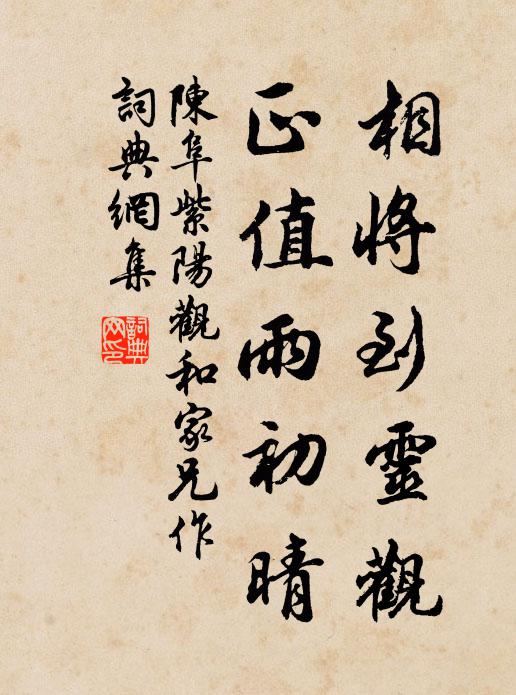 相将到靈觀
正值雨初晴
陳阜紫陽觀和家兄作
詞典網集
詞典網印